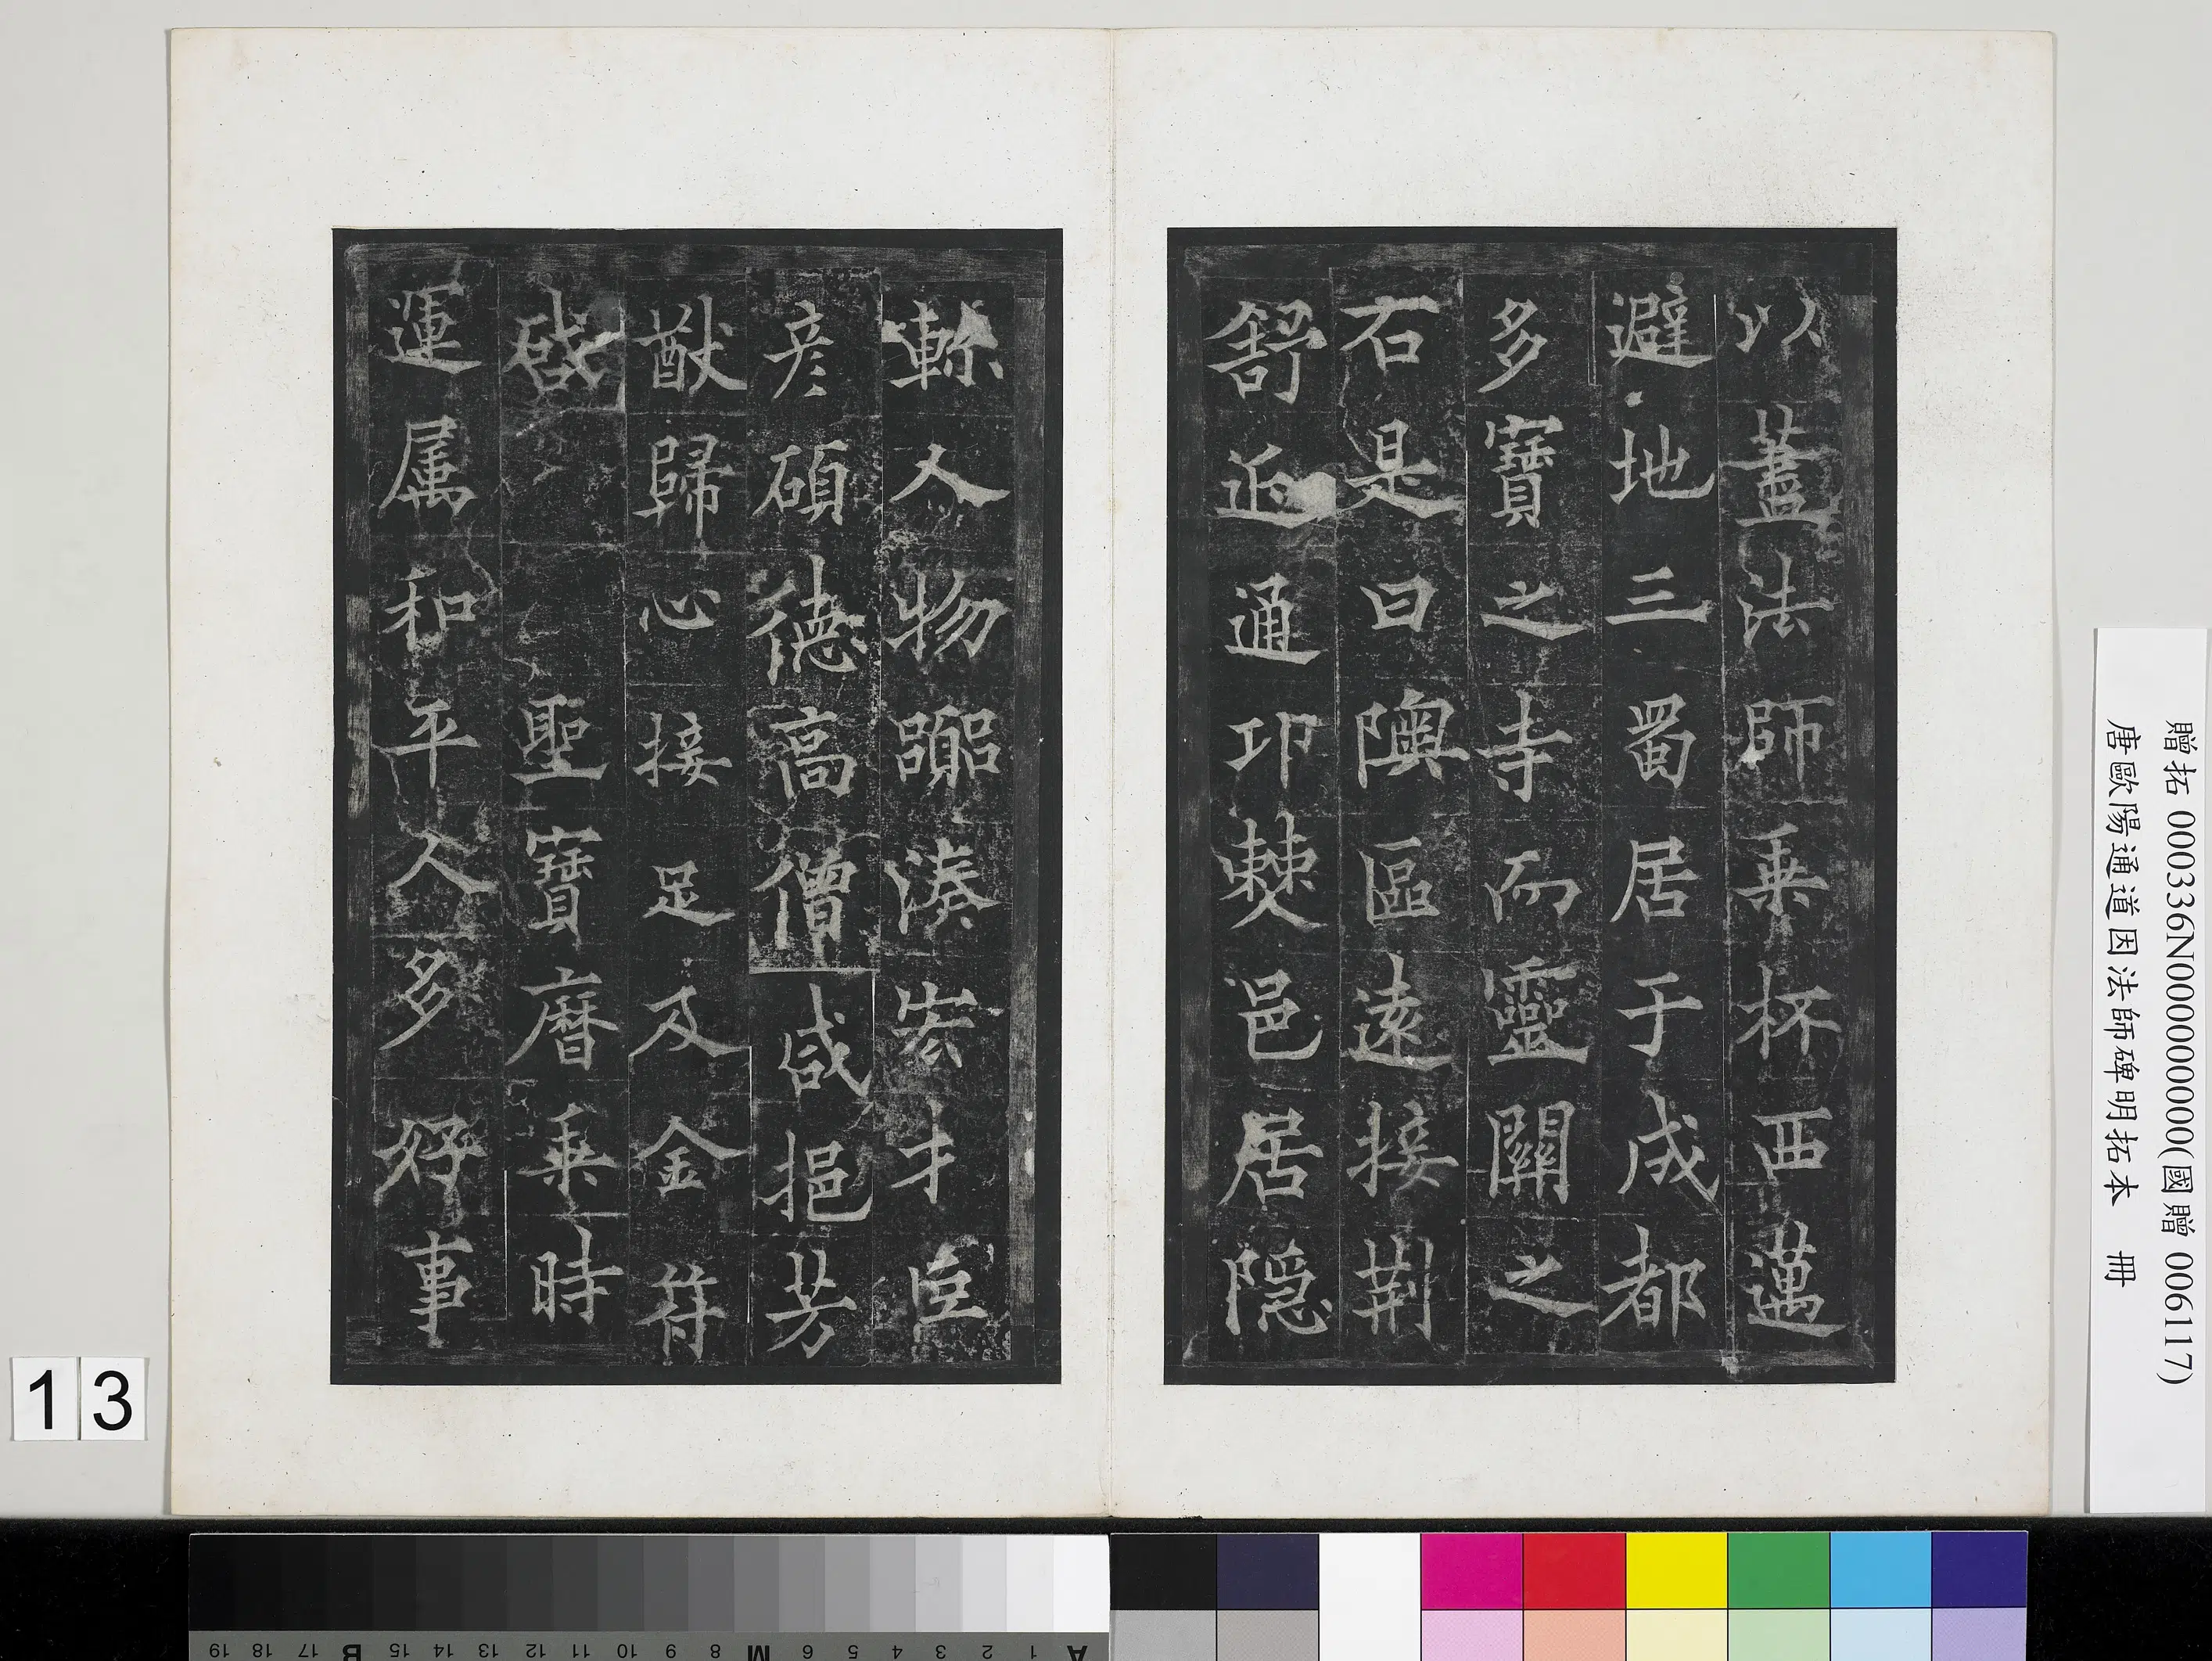 以蓋法師乗杯西邁
避地三蜀居于成都
多寶之寺而靈關之
石是曰隩區遠接荆
舒近通卭僰邑居隠
軫人物嚻湊宏才𦣞
彦碩德高僧咸挹芳
猷歸心接足及金符
啟聖寶曆乗時
運属和平人多好事
贈拓 000336N000000000(國贈 006117)
唐歐陽通道因法師碑明拓本 冊
13
A 1 2 3 4 5 6 M 8 9 10 11 12 13 14 15 B 17 18 19